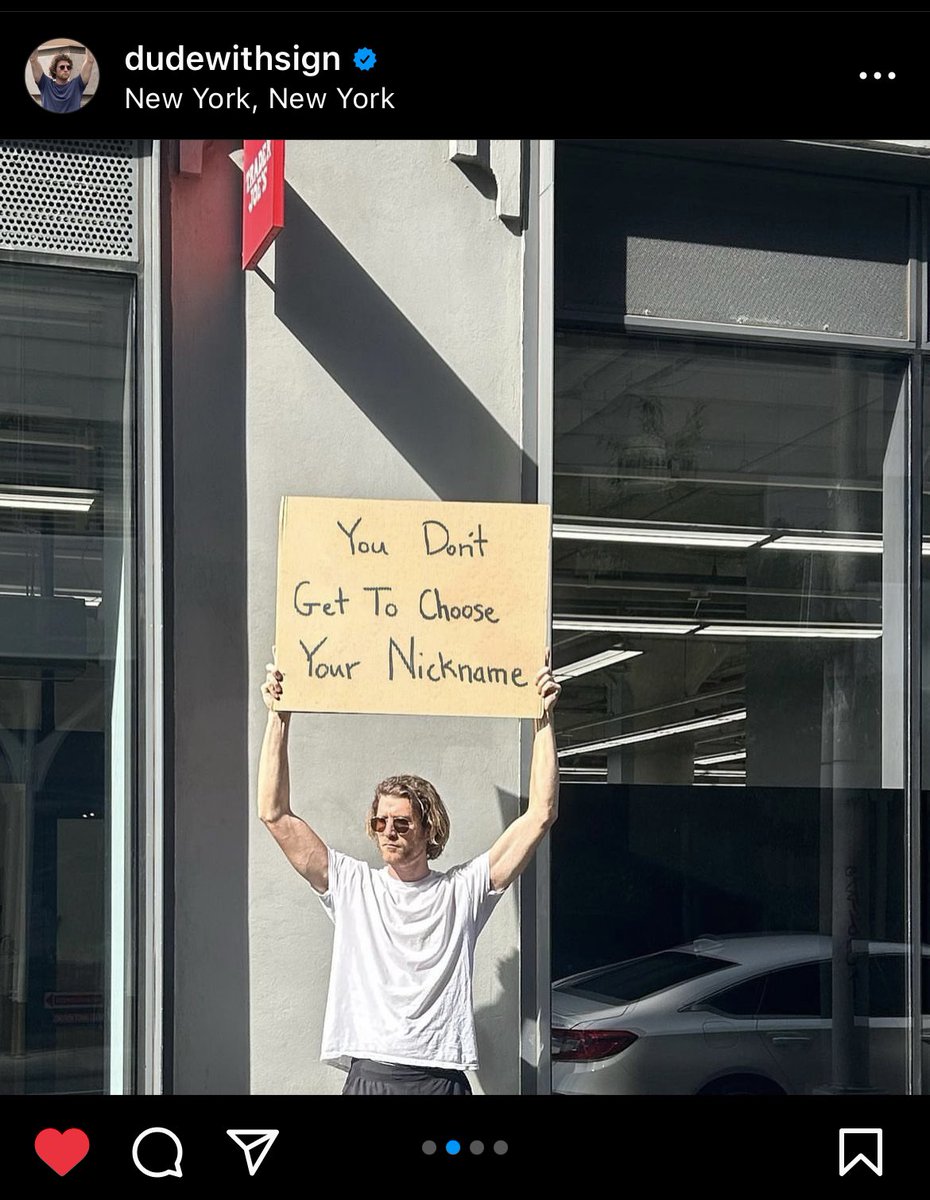 dudewithsign
New York, New York
TRADER
JOE'S
You Don't
Get To Choose
Your Nickname